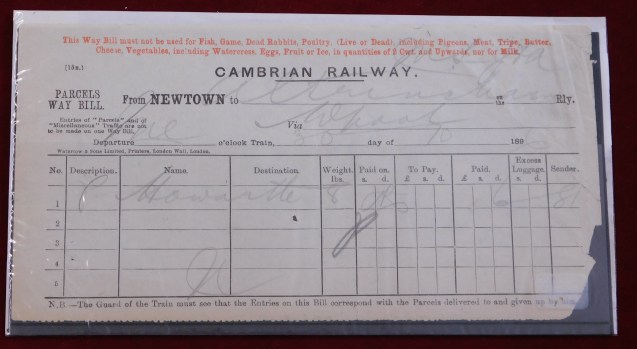 This Way Bill must not be used for Fish, Game, Dead Rabbits, Poultry, (Live or Dead), including Pigeons, Meat, Tripe, Butter,
Cheese, Vegetables, including Watercress, Eggs, Fruit or Ice, in quantities of 2 Cwt. and Upwards, nor for Milk.
(15a.)
CAMBRIAN RAILWAY.
PARCELS
WAY BILL.
From NEWTOWN to on the Rly.
Entries of "Parcels" and of
"Miscellaneous" Traffic are not
to be made on one Way Bill.
Via
Departure o'clock Train, day of 189
Waterlow & Sons Limited, Printers, London Wall, London.
No. Description. Name. Destination. Weight. lbs. Paid on. s. d. To Pay. £ s. d. Paid. £ s. d. Excess Luggage. s. d. Sender.
1 Howarth 8
2
3
4
5
N.B.—The Guard of the Train must see that the Entries on this Bill correspond with the Parcels delivered to and given up by him.